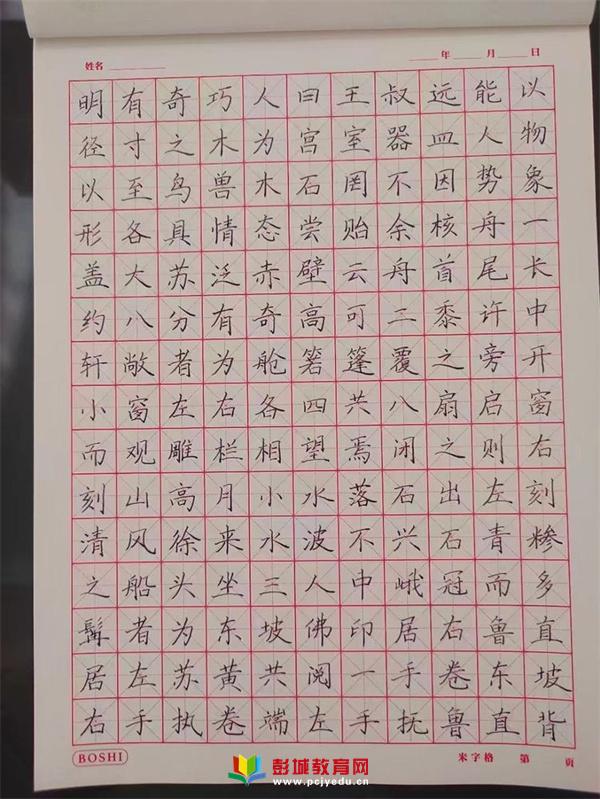 姓名 年 月 日
明有奇巧人曰王叔远能以
径寸之木为宫室器皿人物
以至鸟兽木石罔不因势象
形各具情态尝贻余核舟一
盖大苏泛赤壁云舟首尾长
约八分有奇高可二黍许中
轩敞者为舱箬篷覆之旁开
小窗左右各四共八扇启窗
而观雕栏相望焉闭之则右
刻山高月小水落石出左刻
清风徐来水波不兴石青糁
之船头坐三人中峨冠而多
髯者为东坡佛印居右鲁直
居左苏黄共阅一手卷东坡
右手执卷端左手抚鲁直背
BOSHI 米字格 第 页
彭城教育网
www.pcjyedu.cn